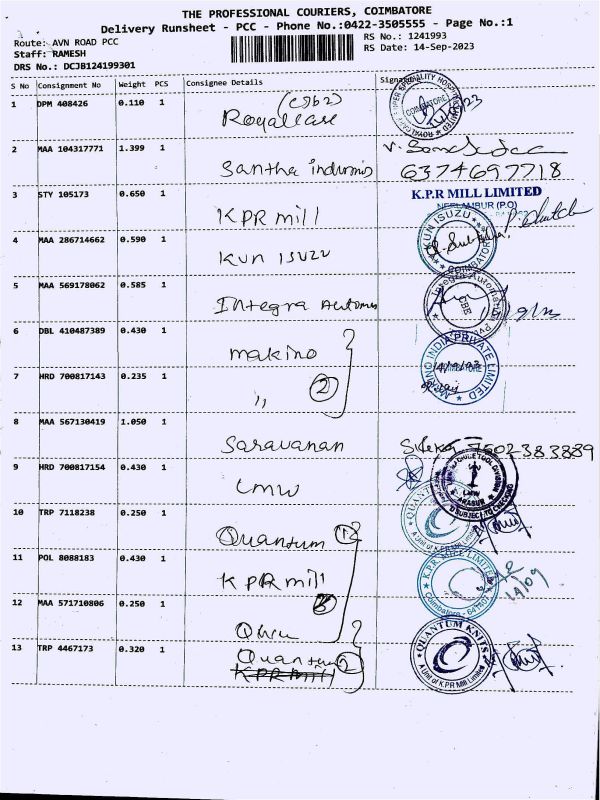 THE PROFESSIONAL COURIERS, COIMBATORE
Delivery Runsheet - PCC - Phone No.:0422-3505555 - Page No.:1
Route: AVN ROAD PCC
Staff: RAMESH
DRS No.: DCJB124199301
RS No.: 1241993
RS Date: 14-Sep-2023
S No Consignment No Weight PCS Consignee Details Signature
1 DPM 408426 0.110 1 Royalcare
2 MAA 104317771 1.399 1 Santha 6374697718
3 STY 105173 0.650 1 KPR mill K.P.R MILL LIMITED
NEELAMBUR (P.O)
4 MAA 286714662 0.590 1 KUN ISUZU KUN ISUZU COIMBATORE
5 MAA 569178062 0.585 1 Integra
6 DBL 410487389 0.430 1 makino MAKINO INDIA PRIVATE LIMITED
7 HRD 700817143 0.235 1 " 2
8 MAA 567130419 1.050 1 Saravanan
9 HRD 700817154 0.430 1 LMW
10 TRP 7118238 0.250 1 Quantum
11 POL 8088183 0.430 1 KPR mill K.P.R MILL LIMITED
12 MAA 571710806 0.250 1
13 TRP 4467173 0.320 1 Quantum 2 QUANTUM KNITS
A Unit of K.P.R Mill Limited
KPR Mill